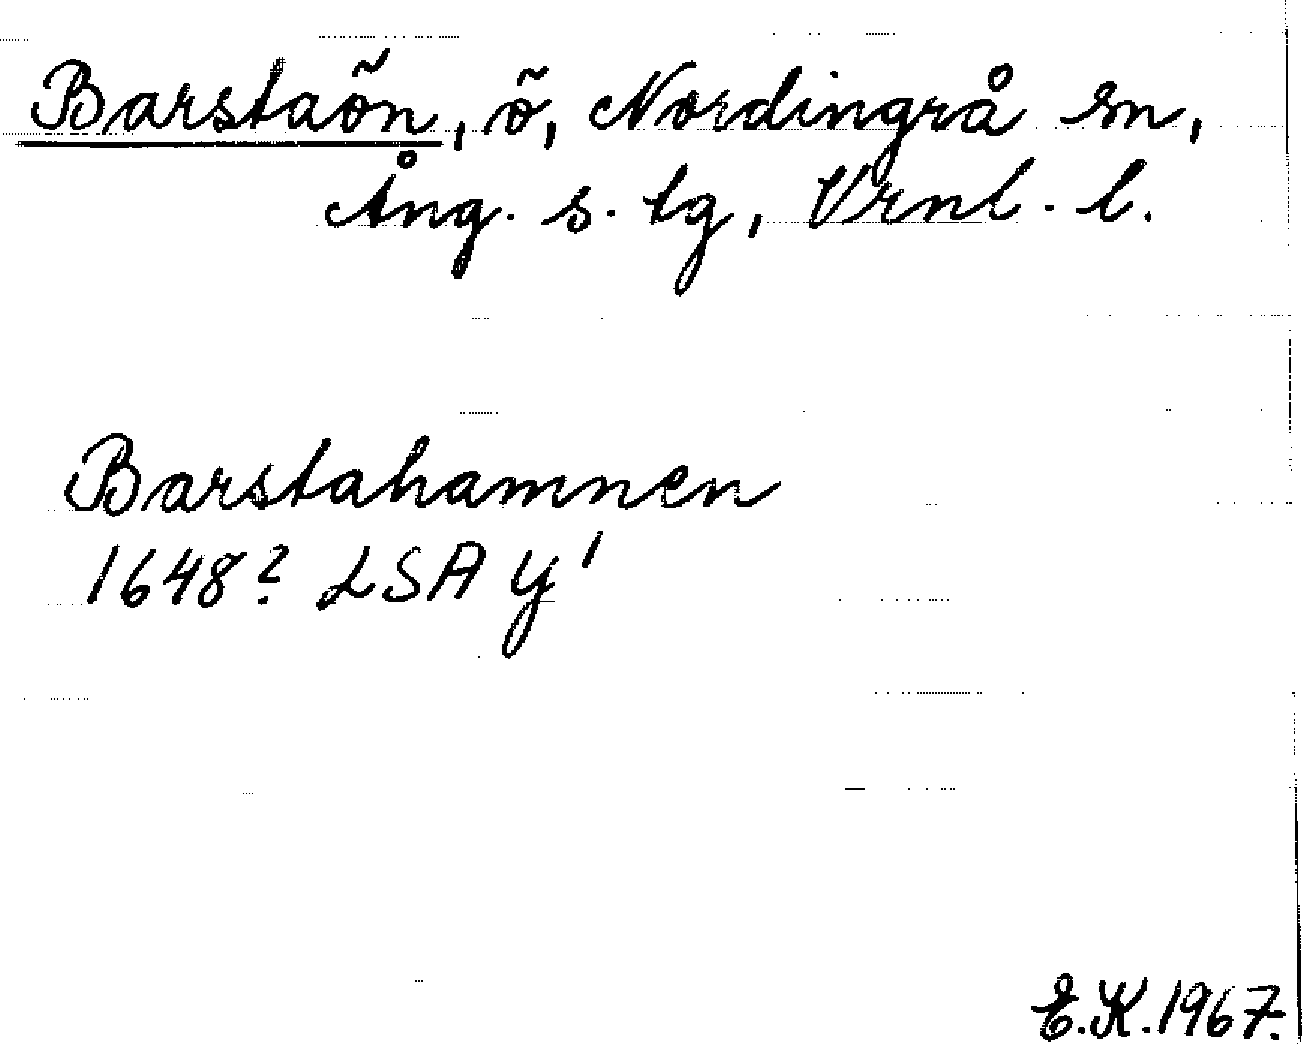 Barstaön, ö, Nordingrå sn,
Ång. s. tg, Vrnl. l.
Barstahamnen
1648? LSA Y¹
E.K. 1967.